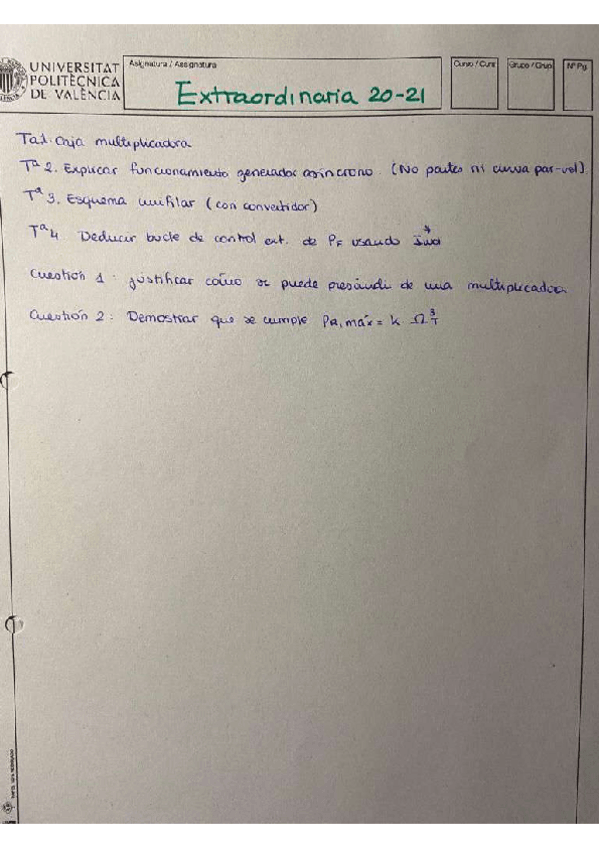 UNIVERSITAT
POLITÈCNICA
DE VALÈNCIA
Asignatura / Assignatura
Curso / Curs
Grupo / Grup
Nº Pg.
Extraordinaria 20-21
Ta1. Caja multiplicadora
Tª 2. Explicar funcionamiento generador asíncrono. (No partes ni curva par-vel)
Tª 3. Esquema unifilar (con convertidor)
Tª 4. Deducir bucle de control ext. de PF usando
Cuestión 1: justificar cómo se puede prescindir de una multiplicadora.
Cuestión 2: Demostrar que se cumple PR,máx = k Ω³T